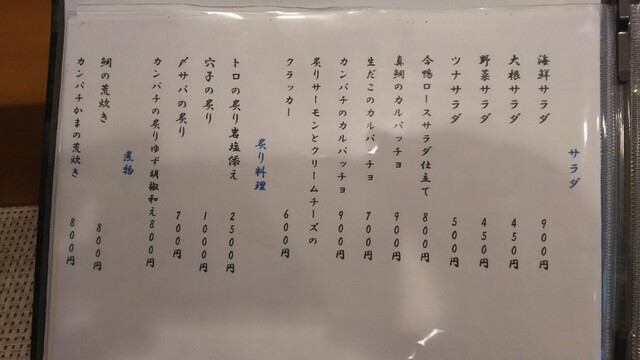 サラダ
海鮮サラダ 900円
大根サラダ 450円
野菜サラダ 450円
ツナサラダ 500円
合鴨ロースサラダ仕立て 800円
真鯛のカルパッチョ 900円
生だこのカルパンチョ 700円
カンパチのカルパッチョ 900円
炙りサーモンとクリームチーズの
クラッカー 600円
炙り料理
トロの炙り岩塩添え 2500円
穴子の炙り 1000円
〆サバの炙り 700円
カンパチの炙りゆず胡椒和え 800円
煮物
鯛の荒炊き 800円
カンパチかまの荒炊き 800円